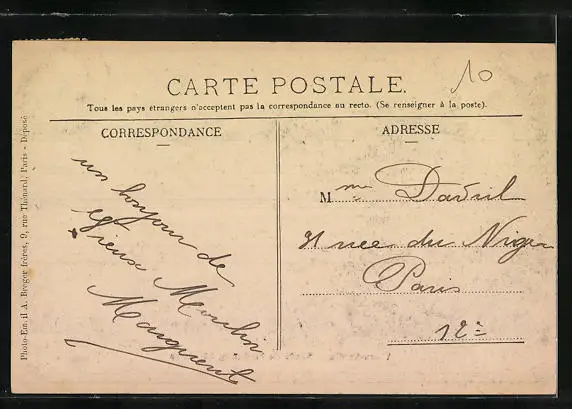 10
CARTE POSTALE.
Tous les pays étrangers n'acceptent pas la correspondance au recto. (Se renseigner à la poste).
CORRESPONDANCE
ADRESSE
un bonjour de
vieux Moulin
M me Davril
31 rue du Niger
Paris
12e
Photo-Em. il A. Breger frères, 9, rue Thénard, Paris - Déposé